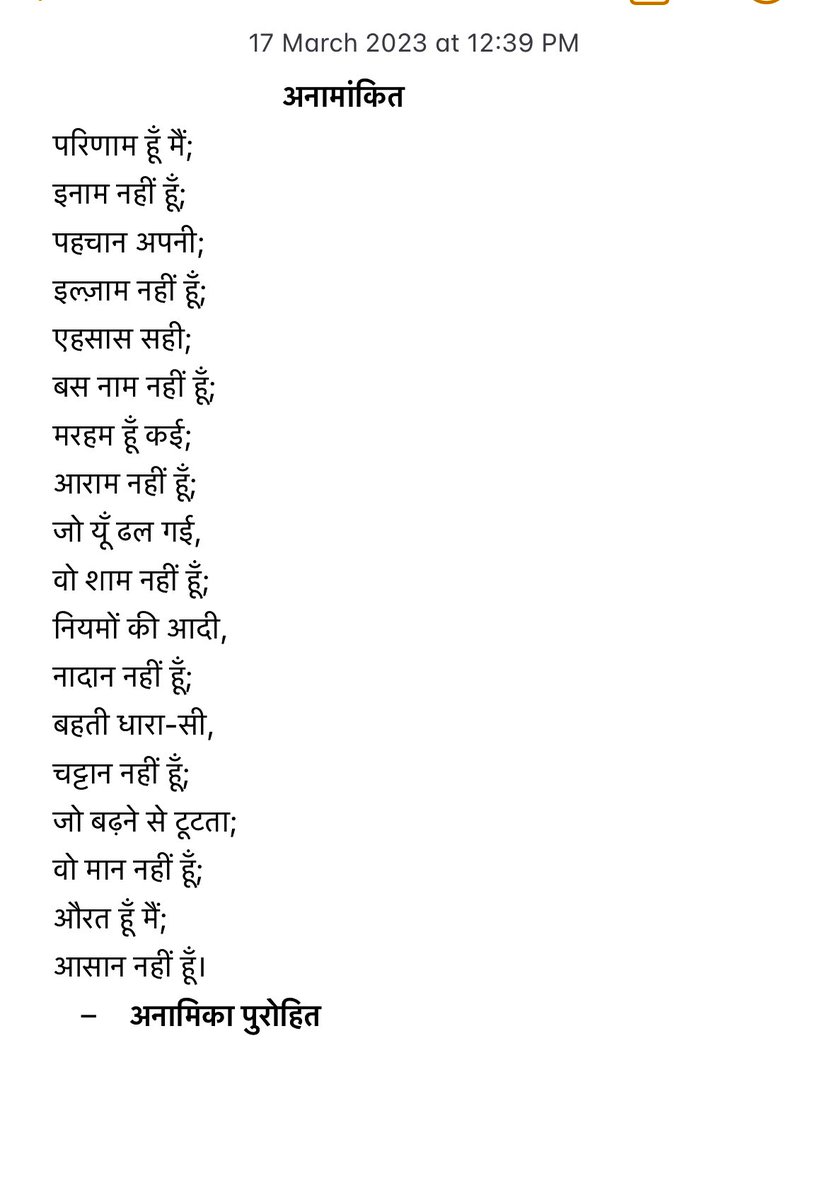 17 March 2023 at 12:39 PM
अनामांकित
परिणाम हूँ मैं;
इनाम नहीं हूँ;
पहचान अपनी;
इल्ज़ाम नहीं हूँ;
एहसास सही;
बस नाम नहीं हूँ;
मरहम हूँ कई;
आराम नहीं हूँ;
जो यूँ ढल गई,
वो शाम नहीं हूँ;
नियमों की आदी,
नादान नहीं हूँ;
बहती धारा-सी,
चट्टान नहीं हूँ;
जो बढ़ने से टूटता;
वो मान नहीं हूँ;
औरत हूँ मैं;
आसान नहीं हूँ।
– अनामिका पुरोहित